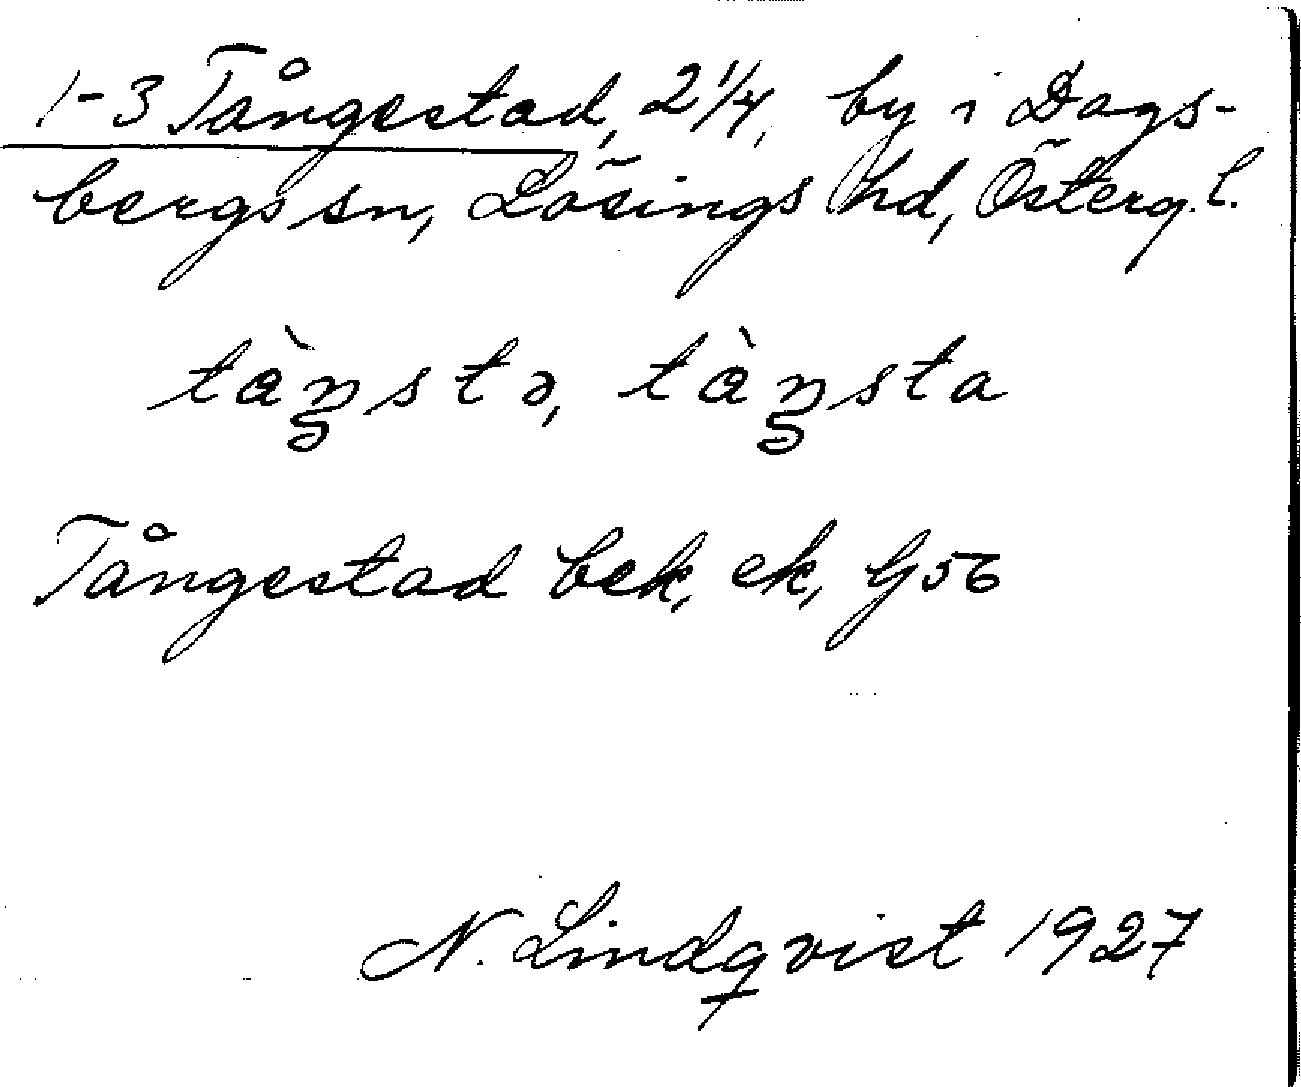 1-3 Tångestad, 2 1/4, by i Dags-
bergs sn, Lösings hd, Österg.l.
tàŋstə, tàŋsta
Tångestad bek, ek, G56
N. Lindqvist 1927